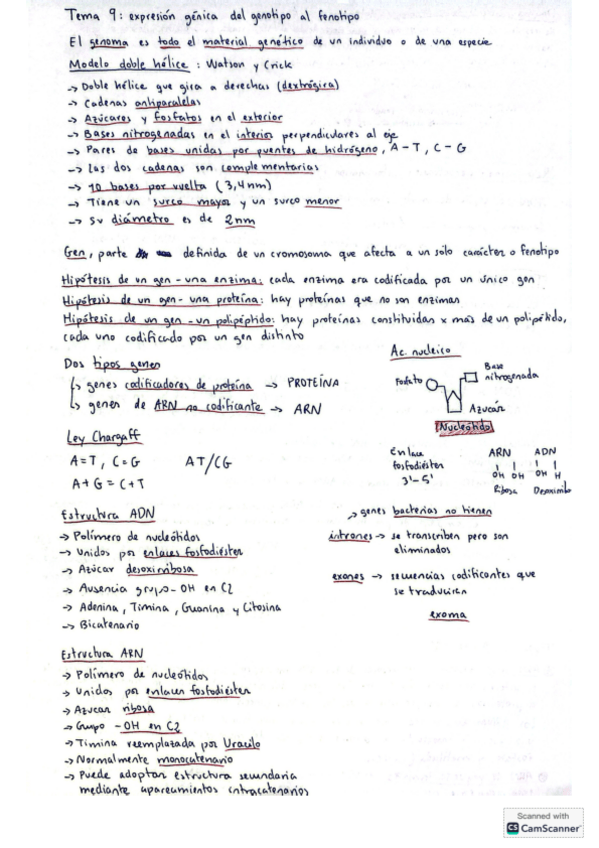 Tema 9: expresión génica del genotipo al fenotipo
El genoma es todo el material genético de un individuo o de una especie
Modelo doble hélice: Watson y Crick
-> Doble hélice que gira a derechas (dextrógira)
-> Cadenas antiparalelas
-> Azúcares y fosfatos en el exterior
-> Bases nitrogenadas en el interior perpendiculares al eje
-> Pares de bases unidas por puentes de hidrógeno, A-T, C-G
-> Las dos cadenas son complementarias
-> 10 bases por vuelta (3,4nm)
-> Tiene un surco mayor y un surco menor
-> Su diámetro es de 2nm
Gen, parte definida de un cromosoma que afecta a un sólo carácter o fenotipo
Hipótesis de un gen-una enzima: cada enzima era codificada por un único gen
Hipótesis de un gen-una proteína: hay proteínas que no son enzimas
Hipótesis de un gen-un polipéptido: hay proteínas constituidas x más de un polipéptido,
cada uno codificado por un gen distinto
Dos tipos genes
↳ genes codificadores de proteína -> PROTEÍNA
↳ genes de ARN no codificante -> ARN
Ac. nucleico
Fosfato
Base
nitrogenada
Azúcar
Nucleótido
Ley Chargaff
A=T, C=G AT/CG
A+G = C+T
Enlace
fosfodiéster
3'-5'
ARN ADN
OH OH OH H
Ribosa
Estructura ADN
-> Polímero de nucleótidos
-> Unidos por enlaces fosfodiéster
-> Azúcar desoxirribosa
-> Ausencia grupo-OH en C2
-> Adenina, Timina, Guanina y Citosina
-> Bicatenario
-> genes bacterias no tienen
intrones -> se transcriben pero son
eliminados
exones -> secuencias codificantes que
se traducirán
exoma
Estructura ARN
-> Polímero de nucleótidos
-> Unidos por enlaces fosfodiéster
-> Azúcar ribosa
-> Grupo -OH en C2
-> Timina reemplazada por Uracilo
-> Normalmente monocatenario
-> Puede adoptar estructura secundaria
mediante apareamientos intracatenarios
Scanned with
CS CamScanner